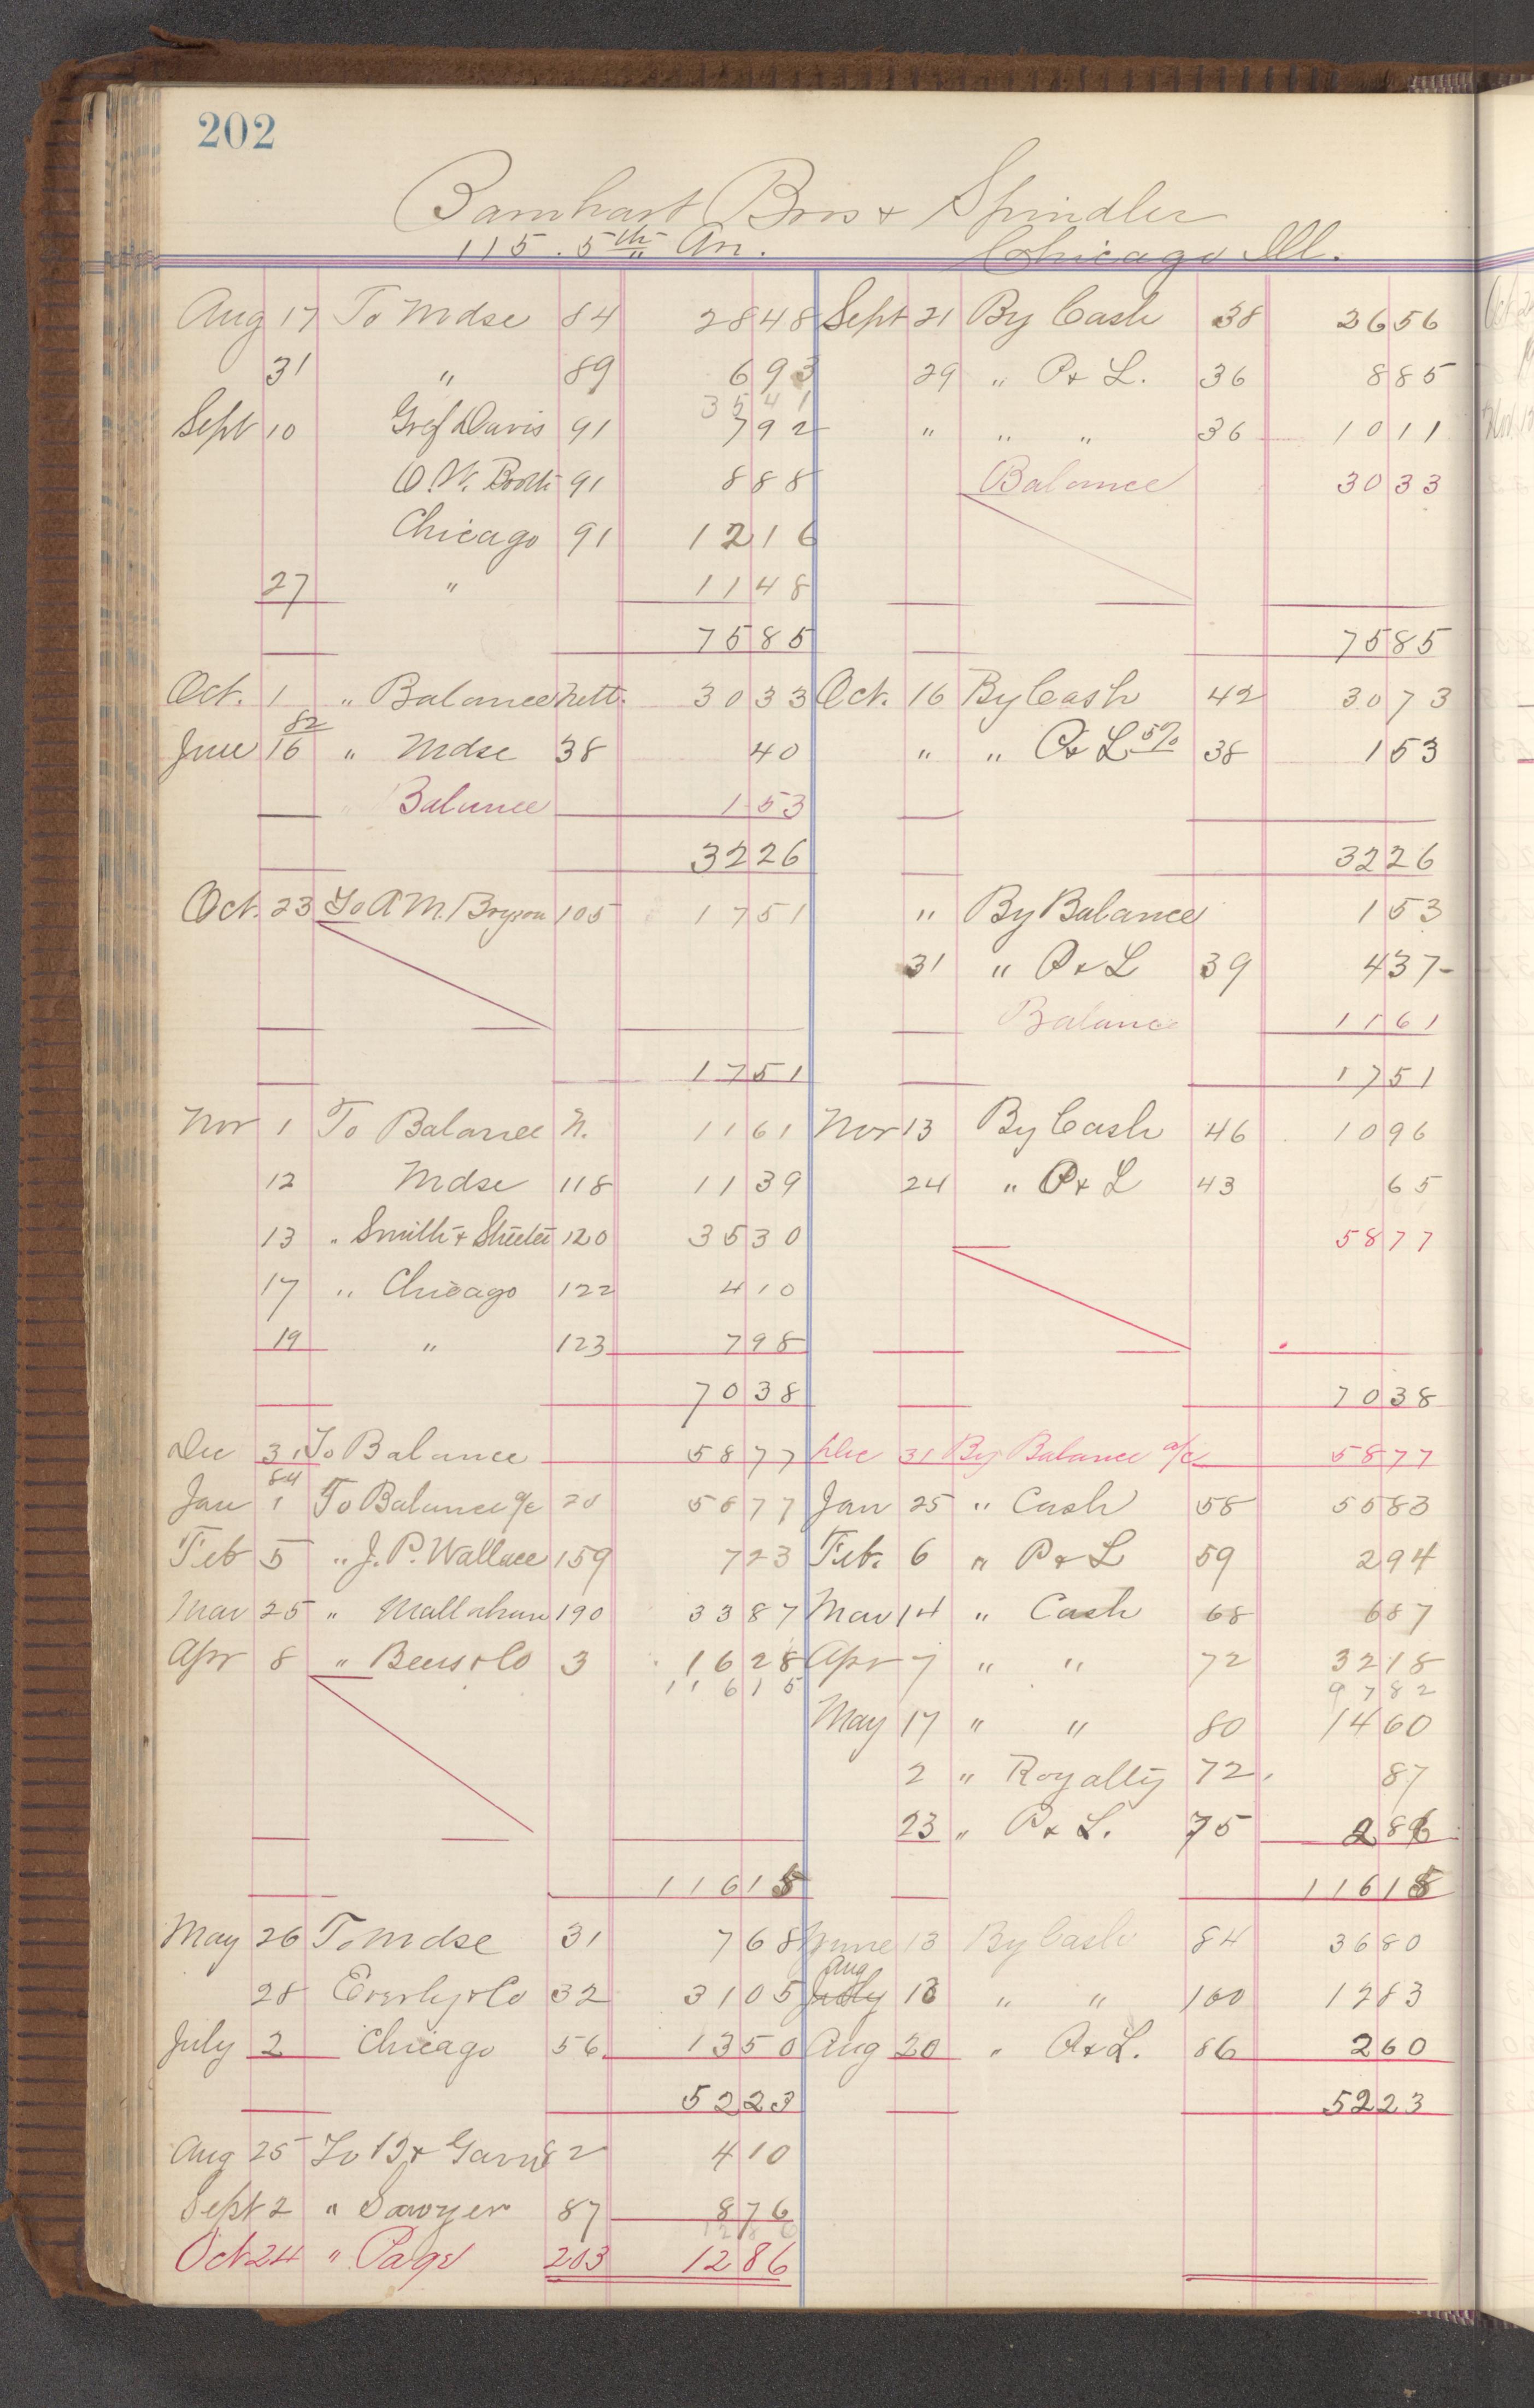 202
Barnhart Bros & Spindler
115. 5th Av. Chicago Ill.
Aug 17 To Mdse 84 2848 Sept 21 By Cash 38 2656
31 " 89 693 29 " P & L. 36 885
3541
Sept 10 Davis 91 792 " " " 36 1011
O.W. Booth 91 888 Balance 3033
Chicago 91 1216
27 " 1148
7585 7585
Oct. 1 " Balance Nett. 3033 Oct. 16 By Cash 42 3073
82
June 16 " Mdse 38 40 " " P & L 5% 38 153
Balance 153
3226 3226
Oct. 23 To A M. Bryson 105 1751 " By Balance 153
31 " P & L 39 437-
Balance 1161
1751 1751
Nov 1 To Balance N. 1161 Nov 13 By Cash 46 1096
12 Mdse 118 1139 24 " P & L 43 65
13 " Smith & 120 3530 5877
17 " Chicago 122 410
19 " 123 798
7038 7038
Dec 31 To Balance 5877 Dec 31 By Balance a/c 5877
84
Jan 1 To Balance a/c 20 5877 Jan 25 " Cash 58 5583
Feb 5 " J. P. Wallace 159 723 Feb. 6 " P & L 59 294
Mar 25 " 190 3387 Mar 14 " Cash 68 687
Apr 8 " Beers & Co 3 1628 Apr 7 " " 72 3218
11615 9782
May 17 " " 80 1460
2 " Royalty 72 87
23 " P & L. 75 286
11615 11615
May 26 To Mdse 31 768 June 13 By Cash 84 3680
Aug
28 & Co 32 3105 July 13 " " 100 1283
July 2 Chicago 56 1350 Aug 20 " P & L. 86 260
5223 5223
Aug 25 To 82 410
Sept 2 " Sawyer 87 876
1286
Oct 24 " Page 203 1286